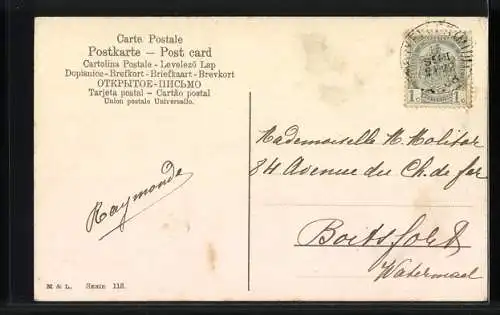 Carte Postale
Postkarte – Post card
Cartolina Postale - Levelező Lap
Dopisnice - Brefkort - Briefkaart - Brevkort
ОТКРЫТОЕ-ПИСЬМО
Tarjeta postal – Cartão postal
Union postale Universelle.
1c 1c
Mademoiselle M. Molitor
84 Avenue du Ch. de fer
Boitsfort
Watermael
Raymonde
M & L. Serie 118.